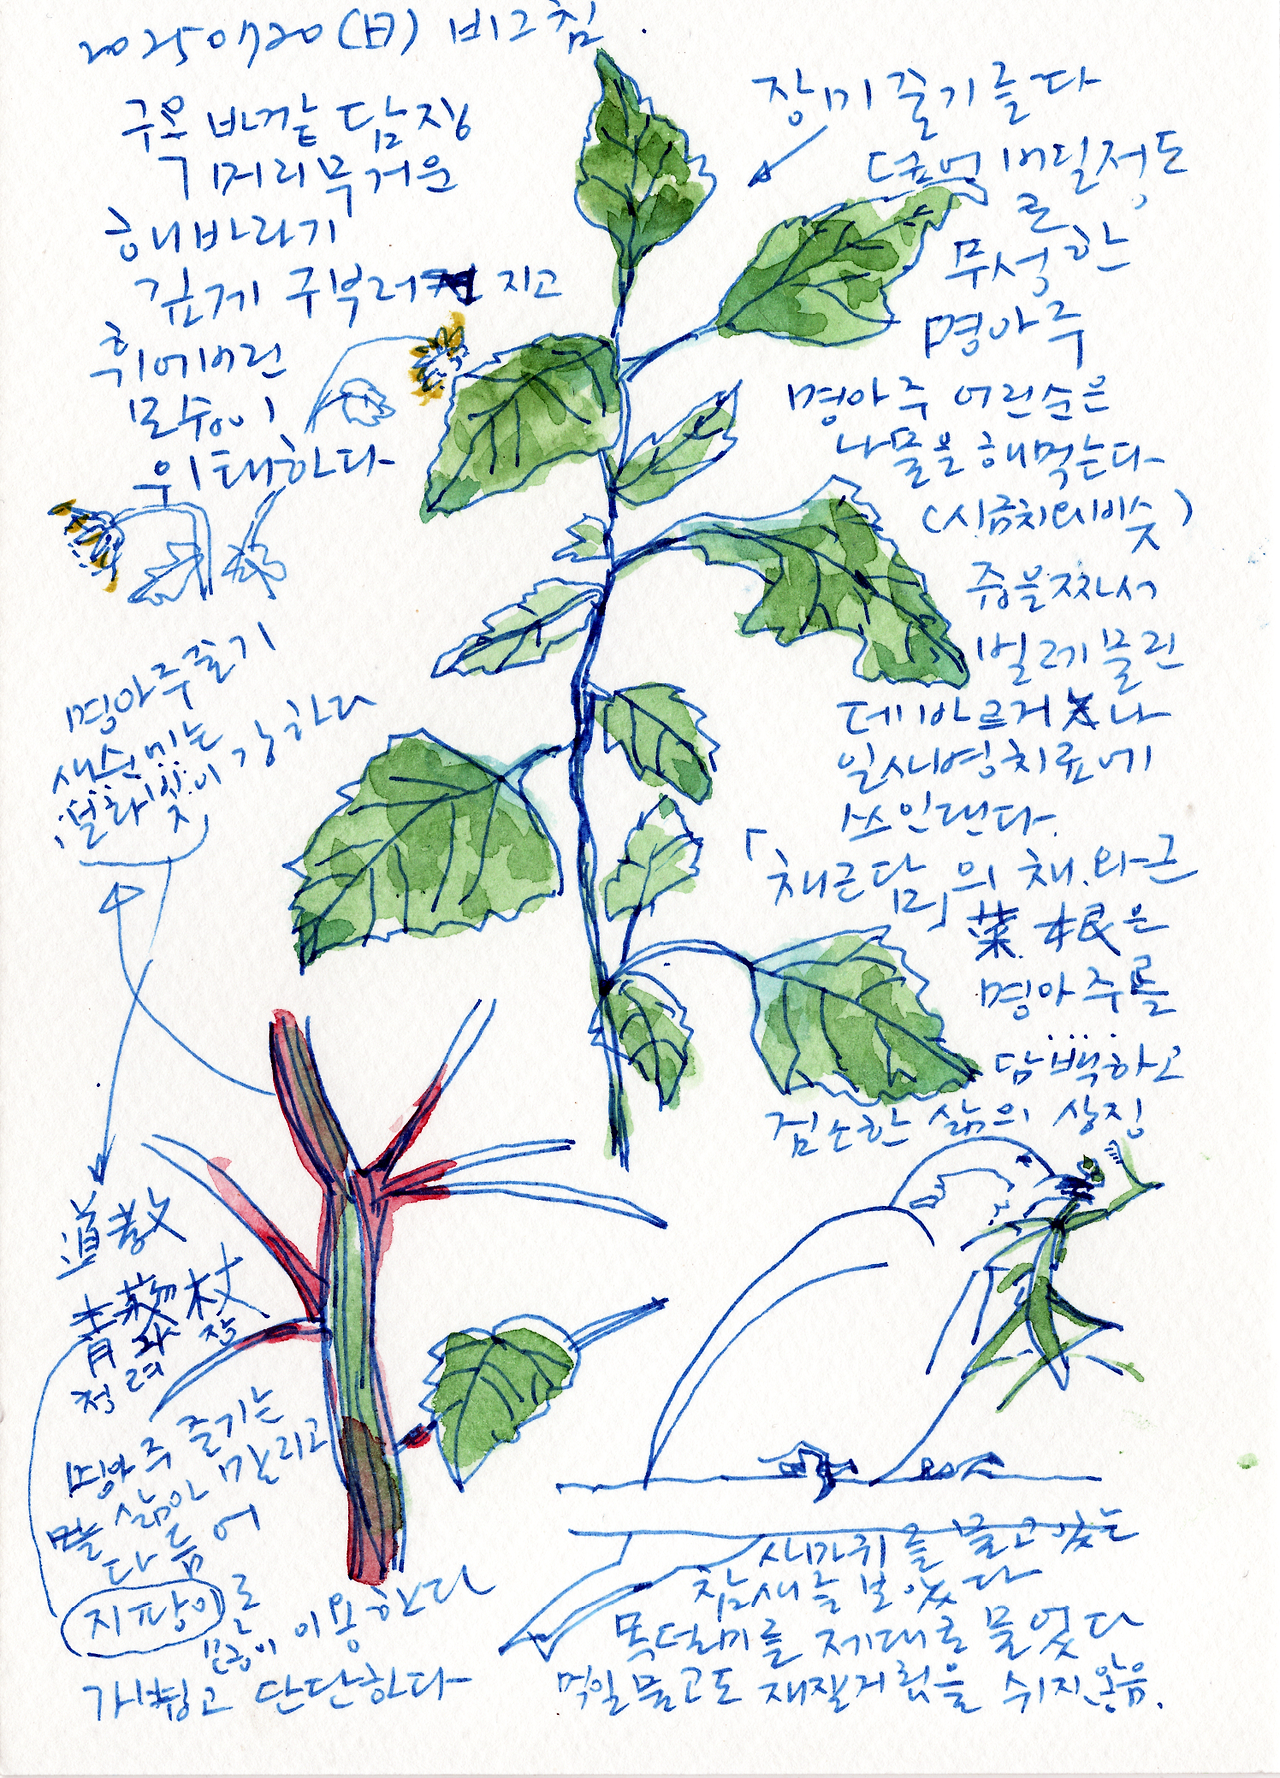 20250720(日) 비그침
구은 바깥 담장
머리무거운
해바라기
깊게 구부러 지고
휘에버린
모습이
위태하다
장미줄기를 다
덮어버릴정도
로
무성한
명아주
명아주 어린순은
나물을 해먹는다
(시금치 비슷)
즙을짜서
벌레물린
데 바르거나
일사병치료에
쓰인댄다.
「채근담」의 채와근
菜.根은
명아주를
담백하고
검소한 삶의 상징
명아주줄기
새순 강하다
道教
青藜杖
청려장
명아주 줄기는
삶아 말리고
다듬어
지팡이로
많이 이용한다
가볍고 단단하다
사마귀를 물고있는
참새를 보았다
목덜미를 제대로 물었다
먹일물고도 재잘거림을 쉬지않음.